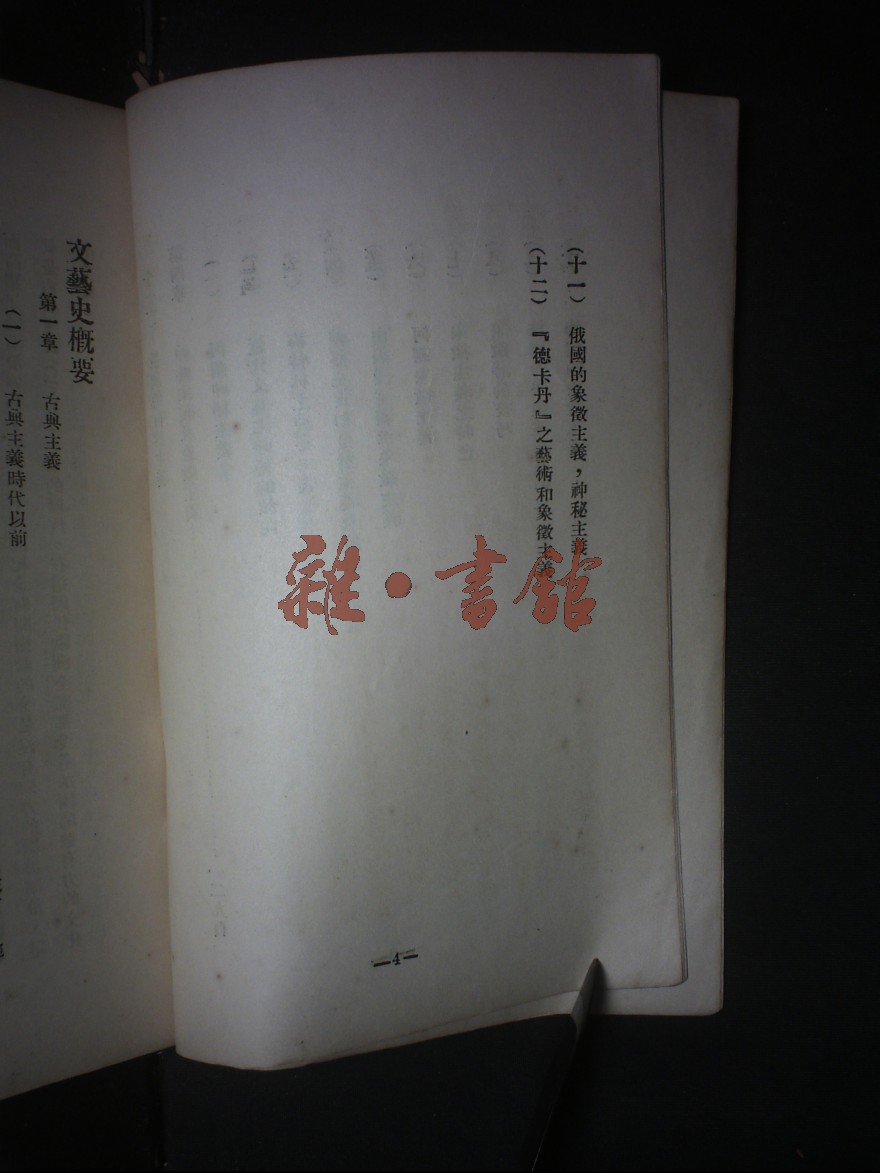 (十一) 俄國的象徵主義，神秘主義
(十二) 『德卡丹』之藝術和象徵主義
—4—
文藝史概要
第一章 古典主義
(一) 古典主義時代以前
雜·書館